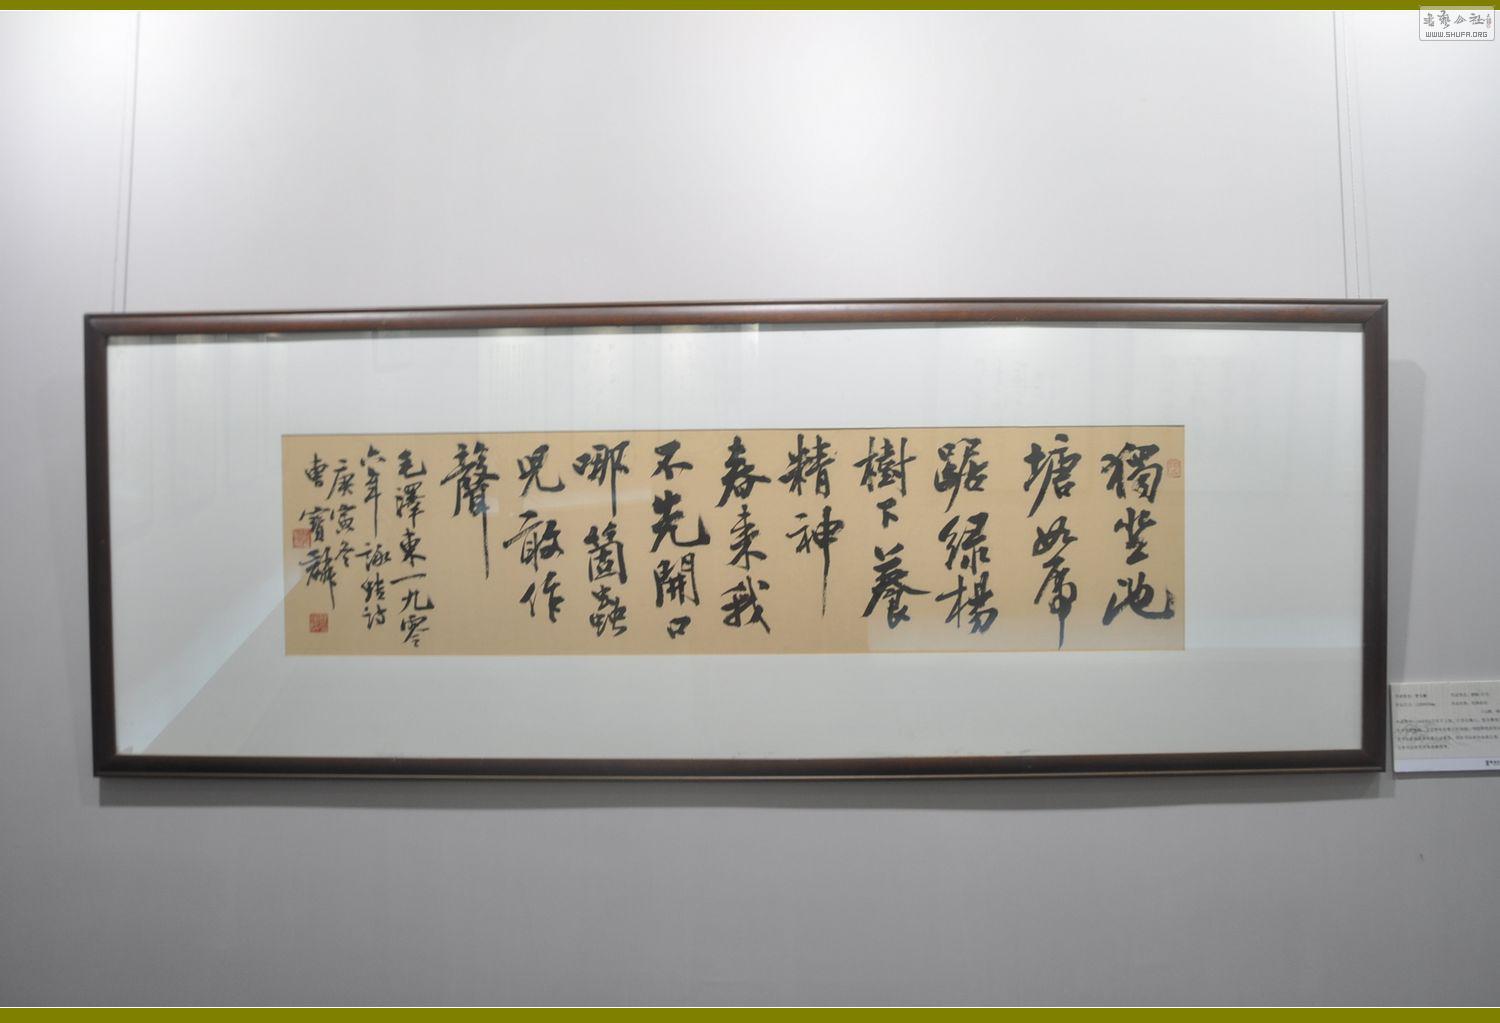 獨坐池
塘如虎
踞綠楊
樹下養
精神
春來我
不先開口
哪箇蟲
兒敢作
聲
毛澤東一九零
六年詠蛙詩
庚寅冬
曹寶麟
WWW.SHUFA.ORG